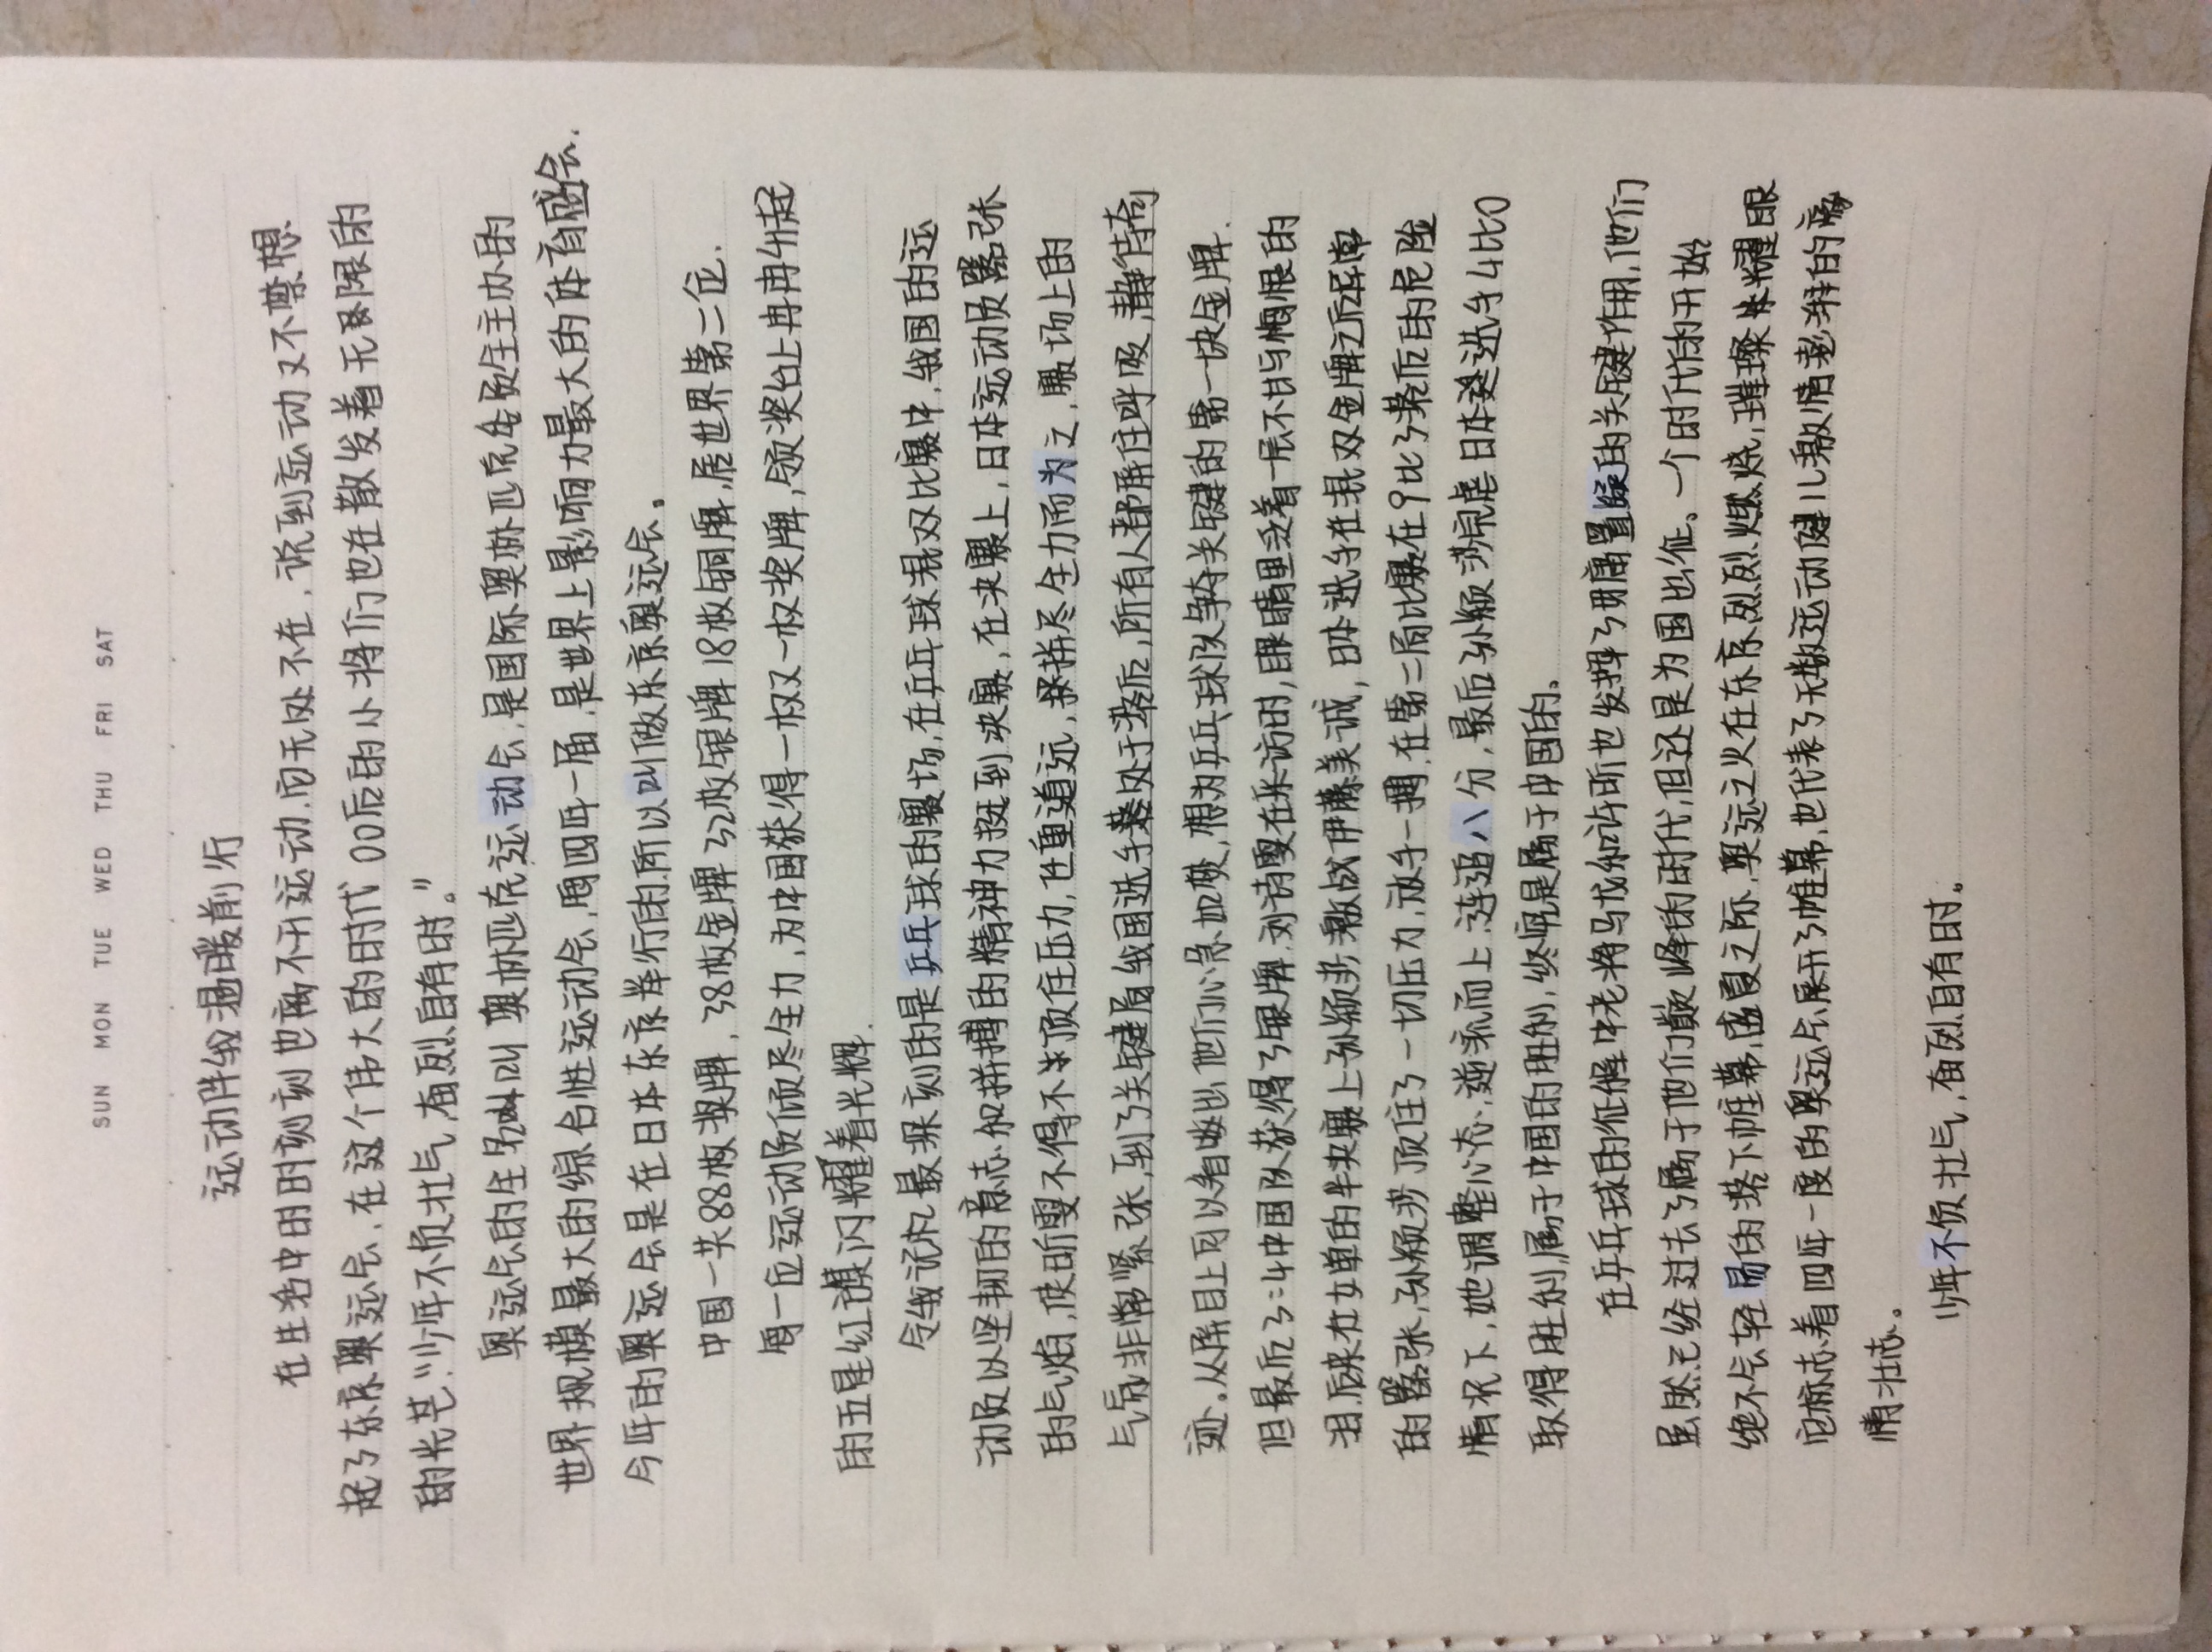 SUN MON TUE WED THU FRI SAT
运动伴我温暖前行
在生活中时时刻刻也离不开运动,而无处不在,说到运动又不禁想
起了东京奥运会,在这个伟大的时代00后的小将们也在散发着无限的
的光芒"少年不负壮气,奋烈自有时。"
奥运会的全名叫奥林匹克运动会,是国际奥林匹克委员会主办的
世界规模最大的综合性运动会,每四年一届,是世界上影响力最大的体育盛会.
今年的奥运会是在日本东京举行的所以叫做东京奥运会。
中国一共88枚奖牌,38枚金牌32枚银牌18枚铜牌,居世界第二位.
每一位运动员倾尽全力,为中国获得一枚又一枚奖牌,颁奖台上冉冉升起
的五星红旗闪耀着光辉.
令我记忆最深刻的是乒乓球的赛场,在乒乓球混双比赛中,我国的运
动员以坚韧的意志和拼搏的精神力挺到决赛,在决赛上,日本运动员嚣张
的气焰,使昕雯不得不顶住压力,任重道远,拼尽全力而为之,赛场上的
气氛非常紧张,到了关键局我国选手落处于落后,所有人都屏住呼吸,静待奇
迹。从屏目上可以看出他们心急如焚,想为乒乓球队争夺关键的第一块金牌.
但最后3:4中国队获得了银牌,刘诗雯在采访时,眼睛里泛着一层不甘与悔恨的
泪,后来在女单的半决赛上孙颖莎激战伊藤美诚,日本选手在混双金牌之后异常
的嚣张,孙颖莎顶住了一切压力,放手一搏,在第二局比赛在9比3落后的危险
情况下,她调整心态,逆流而上,连追八分,最后孙颖莎完虐日本选手4比0
取得胜利,属于中国的胜利,终究是属于中国的。
在乒乓球的征程中老将马龙和许昕也发挥了毋庸置疑的关键作用,他们
虽然已经过去了属于他们巅峰的时代,但还是为国出征。一个时代的开始
绝不会轻易的落下帷幕,盛夏之际,奥运之火在东京烈烈燃烧,璀璨耀眼
它标志着四年一度的奥运会展开了帷幕,也代表了无数运动健儿激情澎湃的豪
情壮志。
少年不负壮气,奋烈自有时。